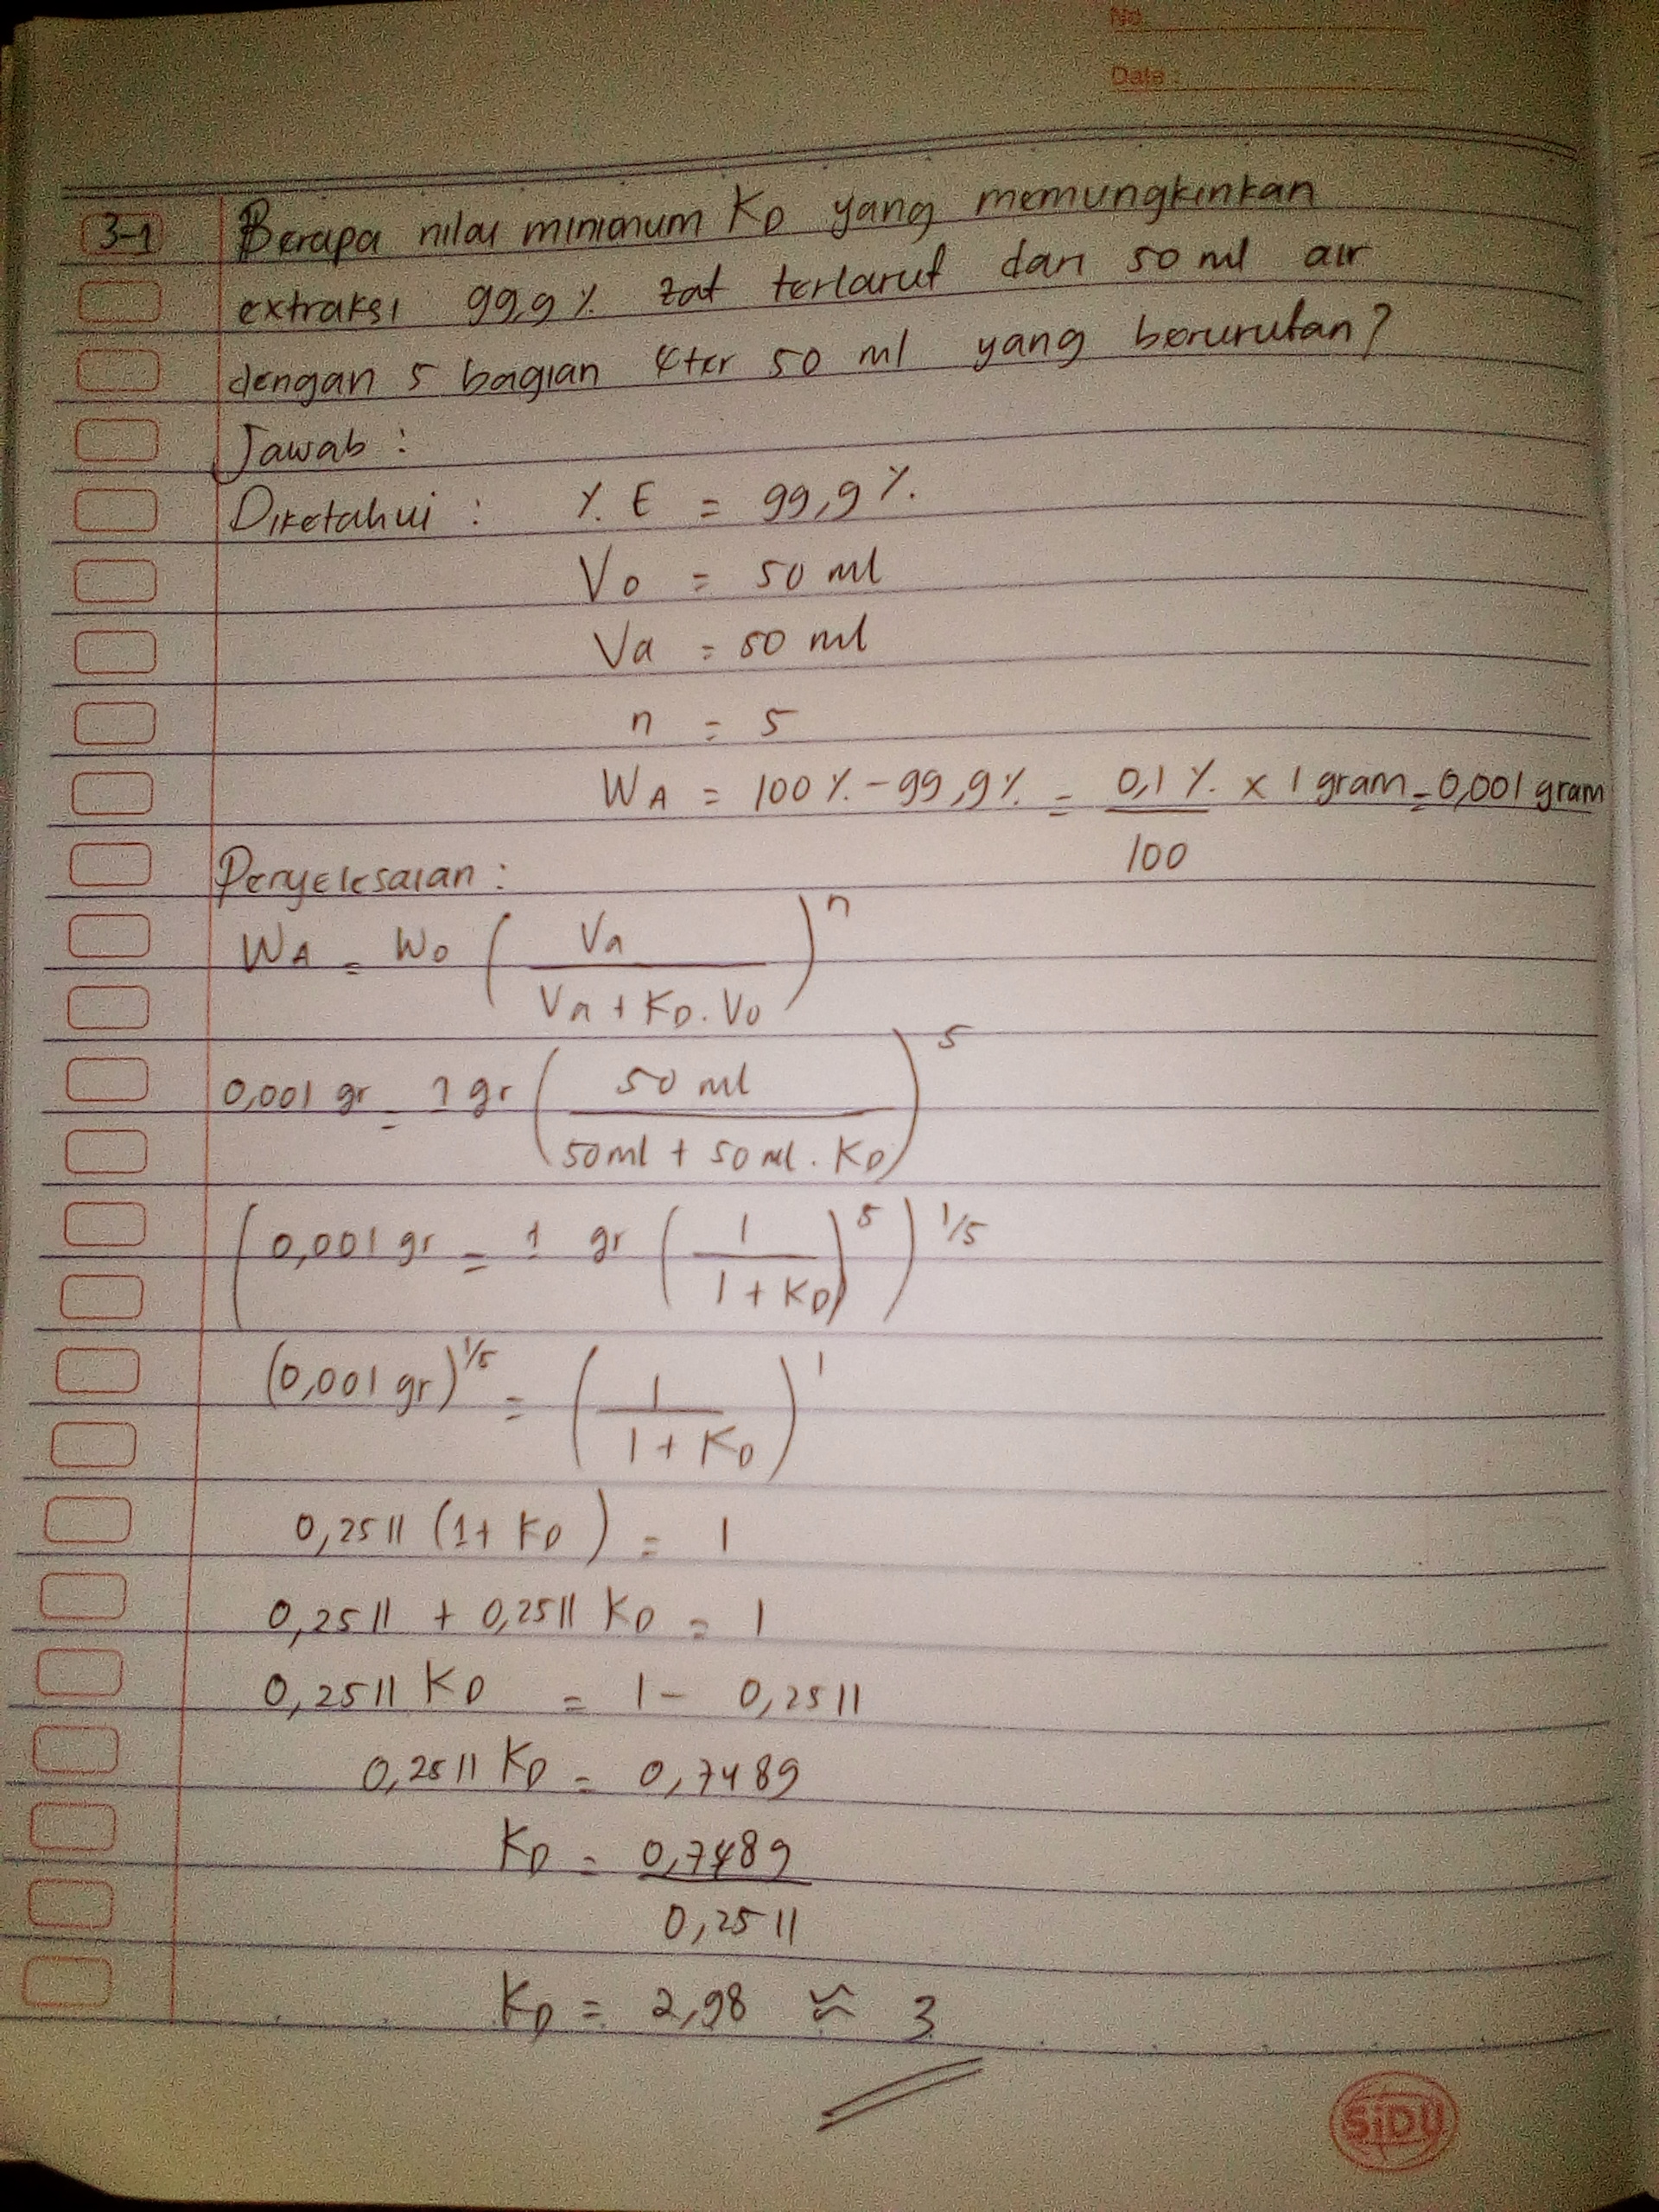 No.
Date :
3-1 Berapa nilai minimum KD yang memungkinkan
extraksi 99,9 % zat terlarut dari 50 ml air
dengan 5 bagian eter 50 ml yang berurutan?
Jawab :
Diketahui : % E = 99,9 %
Vo = 50 ml
Va = 50 ml
n = 5
WA = 100 % - 99,9 % = 0,1 % / 100 x 1 gram = 0,001 gram
Penyelesaian :
WA = Wo ( Va / Va + KD . Vo )^n
0,001 gr = 1 gr ( 50 ml / 50 ml + 50 ml . KD )^5
( 0,001 gr = 1 gr ( 1 / 1 + KD )^5 )^1/5
(0,001 gr)^1/5 = ( 1 / 1 + KD )^1
0,2511 (1 + KD ) = 1
0,2511 + 0,2511 KD = 1
0,2511 KD = 1 - 0,2511
0,2511 KD = 0,7489
KD = 0,7489 / 0,2511
KD = 2,98 ≈ 3
SiDU